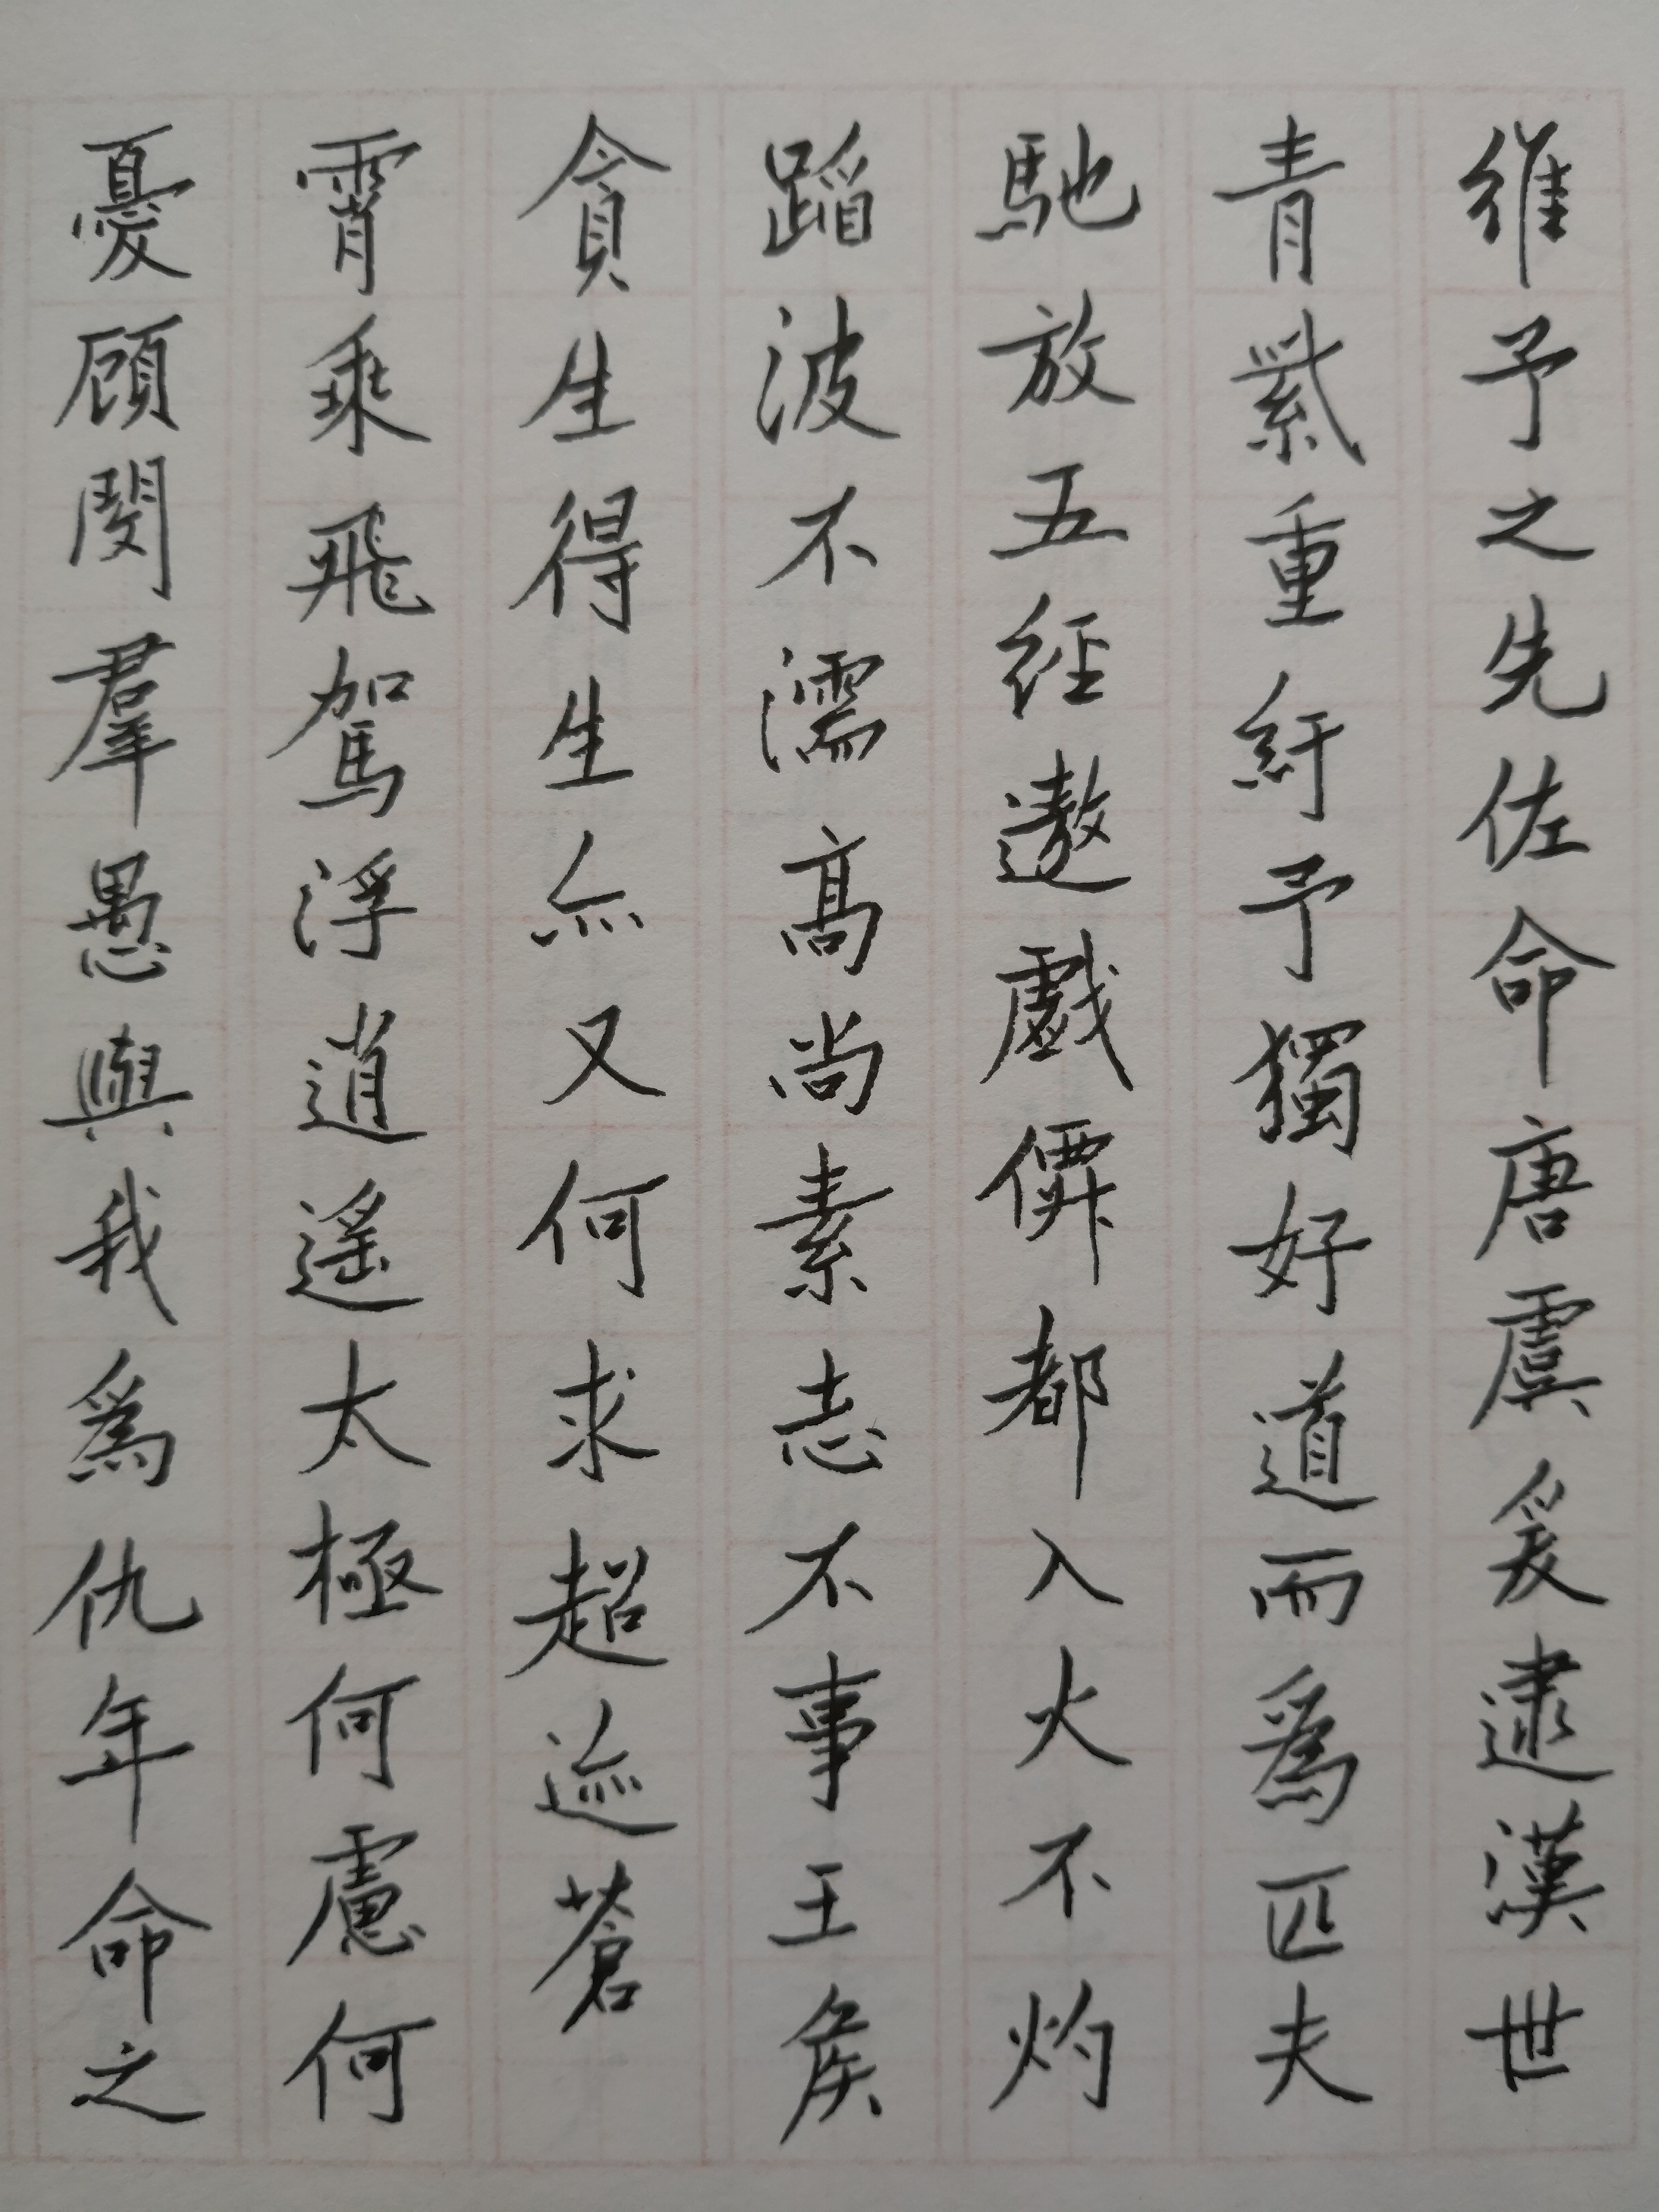 維予之先佐命唐虞爰逮漢世
青紫重紆予獨好道而爲匹夫
馳放五經遨戲僊都入火不灼
蹈波不濡高尚素志不事王侯
貪生得生亦又何求超迹蒼
霄乘飛駕浮逍遙太極何慮何
憂顧閔羣愚與我爲仇年命之